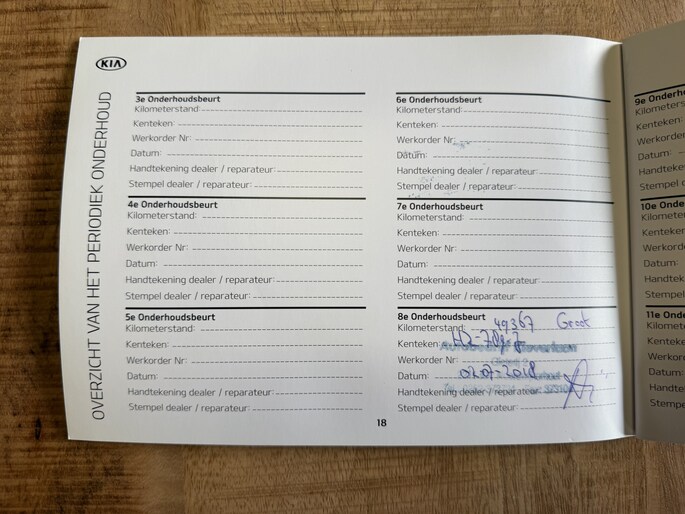 KIA
OVERZICHT VAN HET PERIODIEK ONDERHOUD
3e Onderhoudsbeurt
Kilometerstand:
Kenteken:
Werkorder Nr:
Datum:
Handtekening dealer / reparateur:
Stempel dealer / reparateur:
4e Onderhoudsbeurt
Kilometerstand:
Kenteken:
Werkorder Nr:
Datum:
Handtekening dealer / reparateur:
Stempel dealer / reparateur:
5e Onderhoudsbeurt
Kilometerstand:
Kenteken:
Werkorder Nr:
Datum:
Handtekening dealer / reparateur:
Stempel dealer / reparateur:
6e Onderhoudsbeurt
Kilometerstand:
Kenteken:
Werkorder Nr:
Datum:
Handtekening dealer / reparateur:
Stempel dealer / reparateur:
7e Onderhoudsbeurt
Kilometerstand:
Kenteken:
Werkorder Nr:
Datum:
Handtekening dealer / reparateur:
Stempel dealer / reparateur:
8e Onderhoudsbeurt
Kilometerstand: 49367 Groot
Kenteken:
Werkorder Nr:
Datum: 02-07-2018
Handtekening dealer / reparateur:
Stempel dealer / reparateur:
18
9e Onderh
Kilometers
Kenteken:
Werkorder
Datum:
Handteken
Stempel d
10e Onde
Kilometer
Kenteken
Werkord
Datum:
Handteke
Stempel
11e Onde
Kilomete
Kenteke
Werkor
Datum:
Handte
Stempe